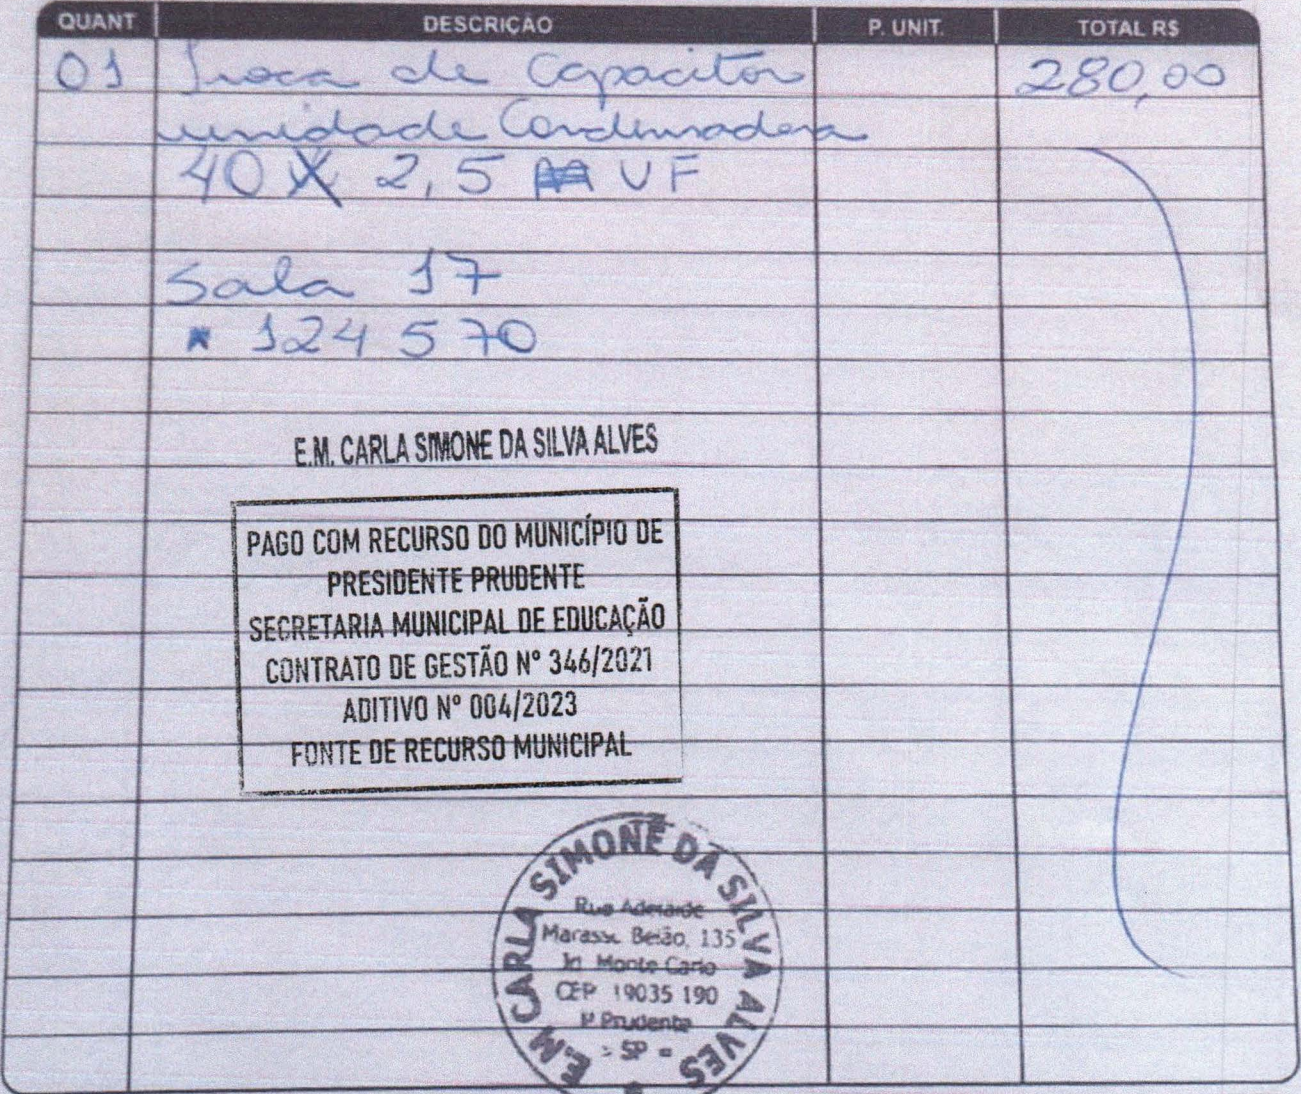 QUANT DESCRIÇÃO P. UNIT. TOTAL R$
01 Troca de Capacitor 280,00
unidade Condensadora
40 X 2,5 UF
Sala 17
* 124 570
E.M. CARLA SIMONE DA SILVA ALVES
PAGO COM RECURSO DO MUNICÍPIO DE
PRESIDENTE PRUDENTE
SECRETARIA MUNICIPAL DE EDUCAÇÃO
CONTRATO DE GESTÃO Nº 346/2021
ADITIVO Nº 004/2023
FONTE DE RECURSO MUNICIPAL
E.M CARLA SIMONE DA SILVA ALVES
Rua Adelaide
135
Jd Monte Carlo
CEP 19035 190
Pe Prudente
- SP -